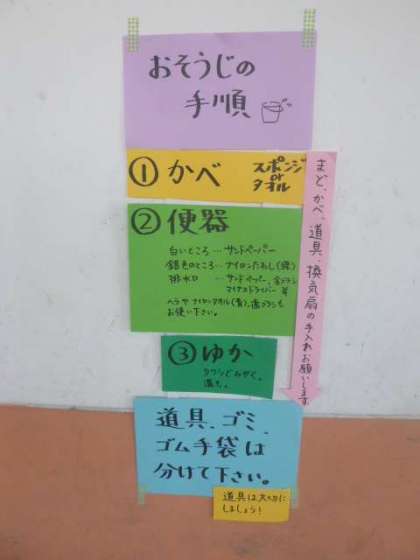 おそうじの
手順
① かべ
スポンジ
or
タオル
② 便器
白いところ…サンドペーパー
銀色のところ…ナイロンたわし(緑)
排水口…サンドペーパー、金ブラシ
マイナスドライバー 等
ヘラやナイロンタオル(青)、歯ブラシも
お使い下さい。
③ ゆか
タワシでみがく。
流す。
まど、かべ、道具、換気扇の手入れお願いします。
道具、ゴミ、
ゴム手袋は
分けて下さい。
道具は大切に
しましょう!